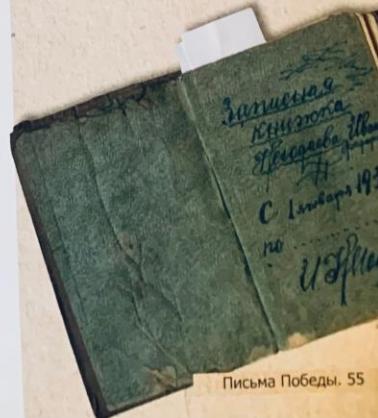 Записная
книжка
Ива
С 1 января 193
по
Письма Победы. 55